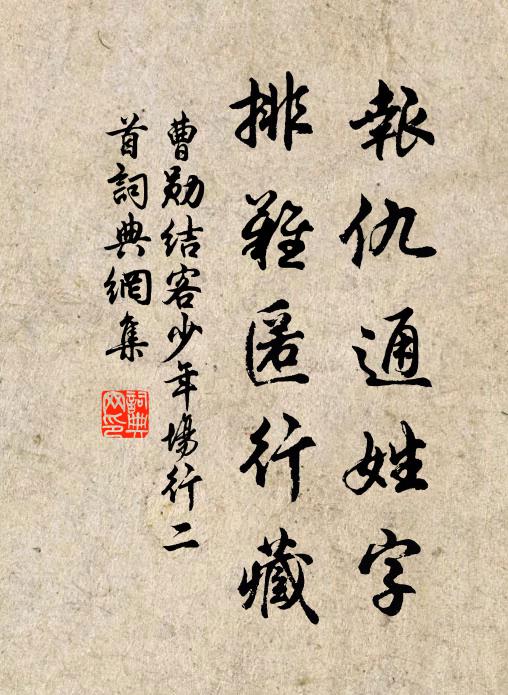 報仇通姓字
排難匿行藏
曹勛結客少年場行二
首詞典網集
詞典
网印